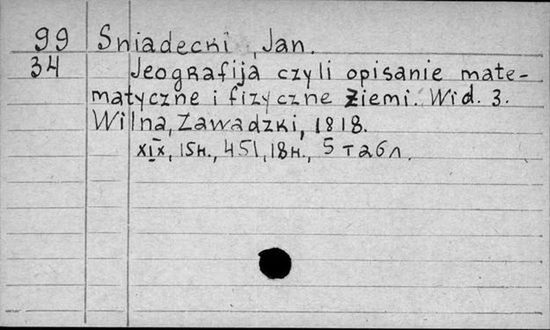 99 Sniadecki, Jan.
34 Jeografija czyli opisanie mate-
matyczne i fizyczne Ziemi. Wid. 3.
Wilna, Zawadzki, 1818.
XIX, 15н., 451, 18н., 5 табл.